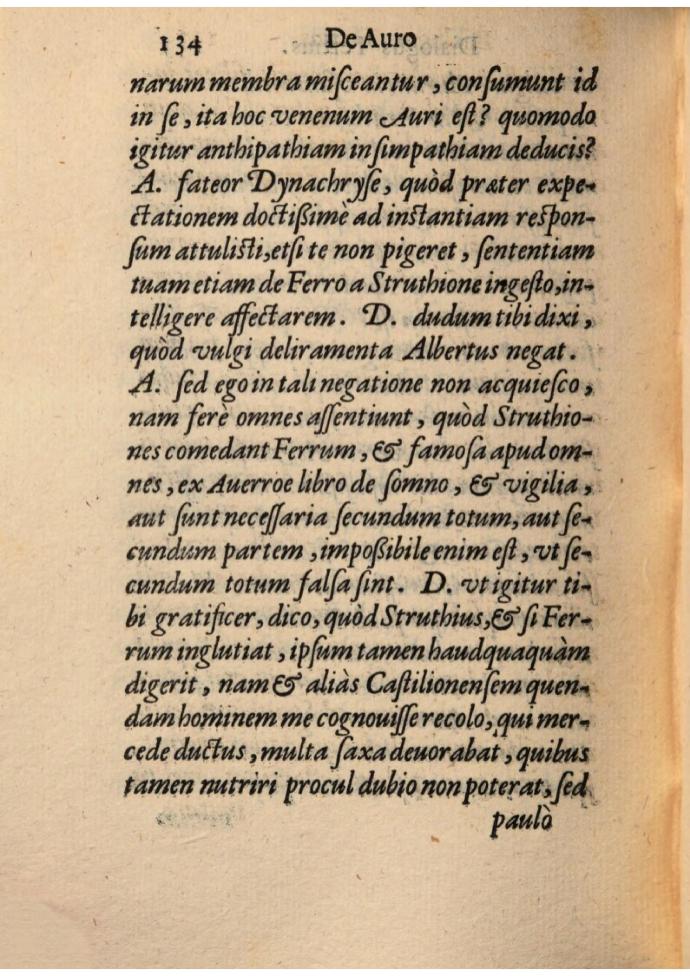 134 De Auro
narum membra miſceantur, conſumunt id
in ſe, ita hoc venenum Auri eſt? quomodo
igitur anthipathiam in ſimpathiam deducis?
A. fateor Dynachryſe, quòd præter expe-
ctationem doctißimè ad inſtantiam reſpon-
ſum attuliſti, etſi te non pigeret, ſententiam
tuam etiam de Ferro a Struthione ingeſto, in-
telligere affectarem. D. dudum tibi dixi,
quòd vulgi deliramenta Albertus negat.
A. ſed ego in tali negatione non acquieſco,
nam ferè omnes aſſentiunt, quòd Struthio-
nes comedant Ferrum, & famoſa apud om-
nes, ex Auerroe libro de ſomno, & vigilia,
aut ſunt neceſſaria ſecundum totum, aut ſe-
cundum partem, impoßibile enim eſt, vt ſe-
cundum totum falſa ſint. D. vt igitur ti-
bi gratificer, dico, quòd Struthius, & ſi Fer-
rum inglutiat, ipſum tamen haudquaquàm
digerit, nam & aliàs Caſtilionenſem quen-
dam hominem me cognouiſſe recolo, qui mer-
cede ductus, multa ſaxa deuorabat, quibus
tamen nutriri procul dubio non poterat, ſed
paulò